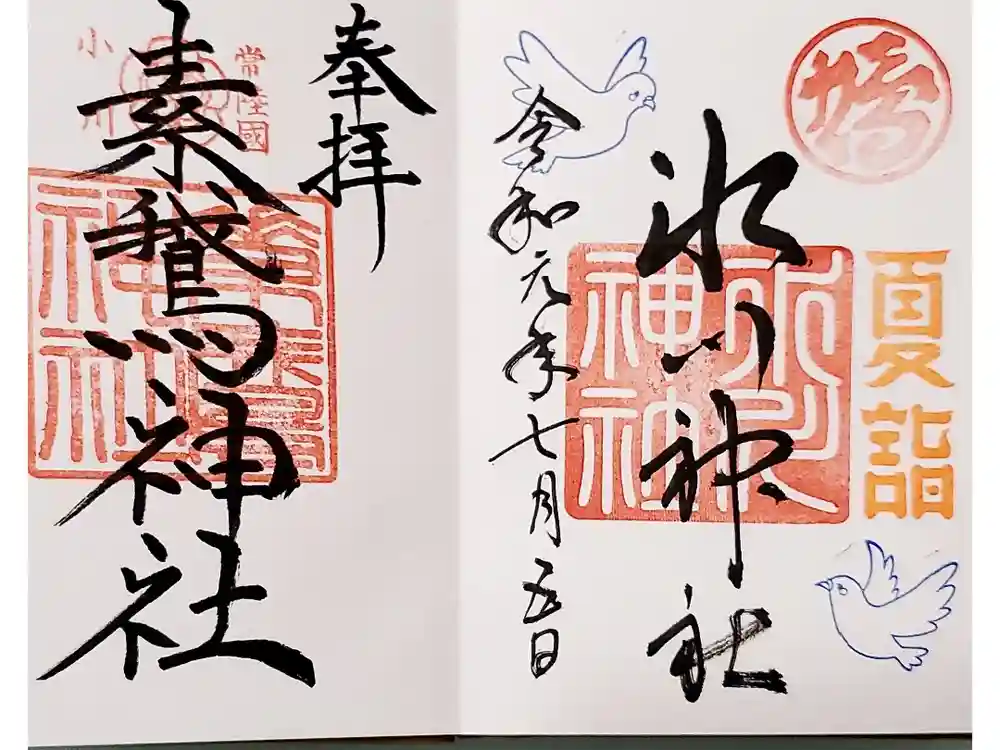 夏詣
氷川神社
氷川
神社
令和元年七月五日
奉拝
常陸國
小川
素鵞神社
素鵞
神社